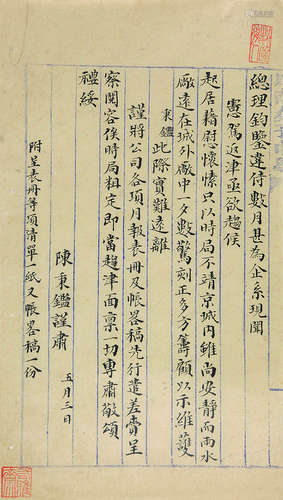 總理鈞鑒違侍數月甚為企系現聞
憲駕返津亟欲趨候
起居藉慰懷愫只以時局不靖京城內雖尚安靜而雨水
廠遠在城外廠中一夕數驚刻正多方籌顧以示維護
秉鑑此際實難遠離
謹將公司各項月報表冊及帳畧稿先行遣差賫呈
察閱容俟時局粗定即當趨津面稟一切專肅敬頌
禮綏
陳秉鑑謹肅 五月三日
附呈表冊等項清單一紙又帳畧稿一份